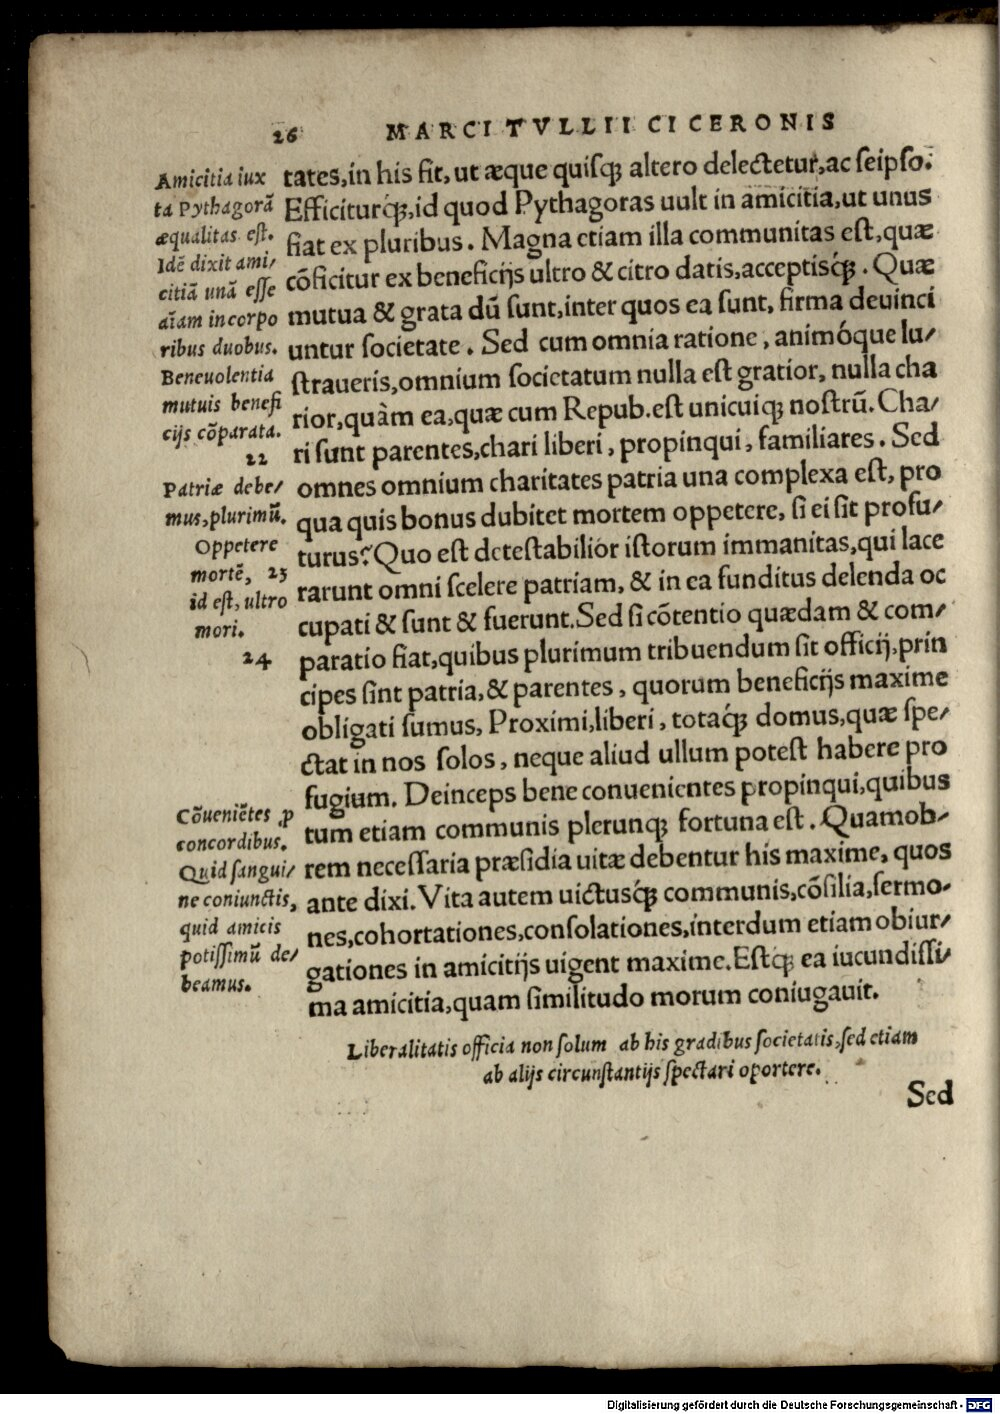 26 MARCI TVLLII CICERONIS
Amicitia iux
ta Pythagorã
æqualitas est.
Idẽ dixit ami/
citiã unã esse
aĩam in corpo
ribus duobus.
Beneuolentia
mutuis benefi
cijs cõparata.
22
Patriæ debe/
mus, plurimũ.
Oppetere
mortẽ, 23
id est, ultro
mori.
24
Cõueniẽtes .p
concordibus.
Quid sangui/
ne coniunctis,
quid amicis
potissimũ de/
beamus.
tates, in his fit, ut æque quisq; altero delectetur, ac seipso.
Efficiturq́;, id quod Pythagoras uult in amicitia, ut unus
fiat ex pluribus. Magna etiam illa communitas est, quæ
cõficitur ex beneficijs ultro & citro datis, acceptisq́;. Quæ
mutua & grata dũ sunt, inter quos ea sunt, firma deuinci
untur societate. Sed cum omnia ratione, animóque lu/
straueris, omnium societatum nulla est gratior, nulla cha
rior, quàm ea, quæ cum Repub. est unicuiq; nostrũ. Cha/
ri sunt parentes, chari liberi, propinqui, familiares. Sed
omnes omnium charitates patria una complexa est, pro
qua quis bonus dubitet mortem oppetere, si ei sit profu/
turus? Quo est detestabilior istorum immanitas, qui lace
rarunt omni scelere patriam, & in ea funditus delenda oc
cupati & sunt & fuerunt. Sed si cõtentio quædam & com/
paratio fiat, quibus plurimum tribuendum sit officij, prin
cipes sint patria, & parentes, quorum beneficijs maxime
obligati sumus, Proximi, liberi, totaq́; domus, quæ spe/
ctat in nos solos, neque aliud ullum potest habere pro
fugium. Deinceps bene conuenientes propinqui, quibus
tum etiam communis plerunq; fortuna est. Quamob/
rem necessaria præsidia uitæ debentur his maxime, quos
ante dixi. Vita autem uictusq́; communis, cõsilia, sermo/
nes, cohortationes, consolationes, interdum etiam obiur/
gationes in amicitijs uigent maxime. Estq; ea iucundissi/
ma amicitia, quam similitudo morum coniugauit.
Liberalitatis officia non solum ab his gradibus societatis, sed etiam
ab alijs circunstantijs spectari oportere.
Sed
Digitalisierung gefördert durch die Deutsche Forschungsgemeinschaft - DFG